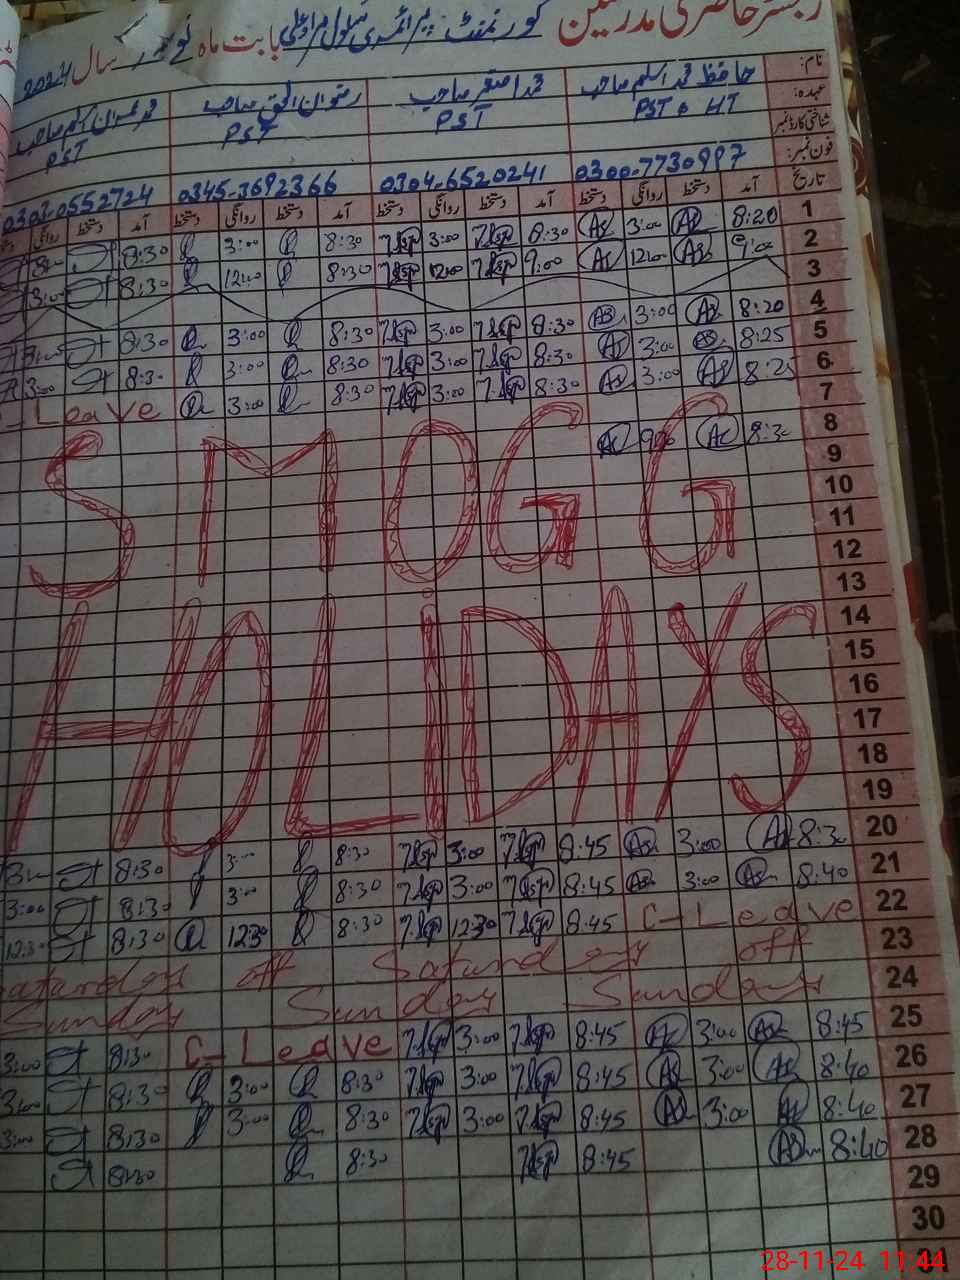 رجسٹر حاضری مدرسین گورنمنٹ پرائمری سکول بابت ماہ نومبر سال 2024
نام: حافظ محمد اسلم صاحب محمد اصغر صاحب رضوان الحق صاحب محمد عمران اسلم صاحب
عہدہ: PST ہ HT PST PST PST
شناختی کارڈ نمبر
فون نمبر: 0300-7730997 0304-6520241 0345-3692366 0303-0552724
تاریخ آمد دستخط روانگی دستخط آمد دستخط روانگی دستخط آمد دستخط روانگی دستخط آمد دستخط روانگی دستخط
1 8:20 3:00 8:30 3:00 8:30 3:00 8:30 3:00
2 9:00 12:00 9:00 12:00 8:30 12:00 8:30
3
4 8:20 3:00 8:30 3:00 8:30 3:00 8:30
5 8:25 3:00 8:30 3:00 8:30 3:00 8:30 3:00
6 8:25 3:00 8:30 3:00 8:30 3:00 Leave
7
8 8:30 9:00
9
10
11
12
SMOGG
13
14
15
16
17
18
19
HOLIDAYS
20 8:30 3:00 8:45 3:00 8:30 3:00 8:30 3:00
21 8:40 3:00 8:45 3:00 8:30 3:00 8:30 3:00
22 C-Leave 8:45 12:30 8:30 12:30 8:30 12:30
23 Saturday off Saturday off
24 Sunday Sunday Sunday
25 8:45 3:00 8:45 3:00 C-Leave 8:30 3:00
26 8:40 3:00 8:45 3:00 8:30 3:00 8:30 3:00
27 8:40 3:00 8:45 3:00 8:30 3:00 8:30 3:00
28 8:40 8:45 8:30 8:30
29
30
28-11-24 11:44